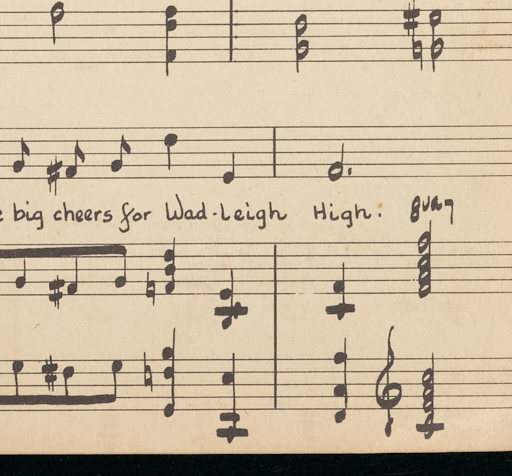 big cheers for Wad-Leigh High. 8va